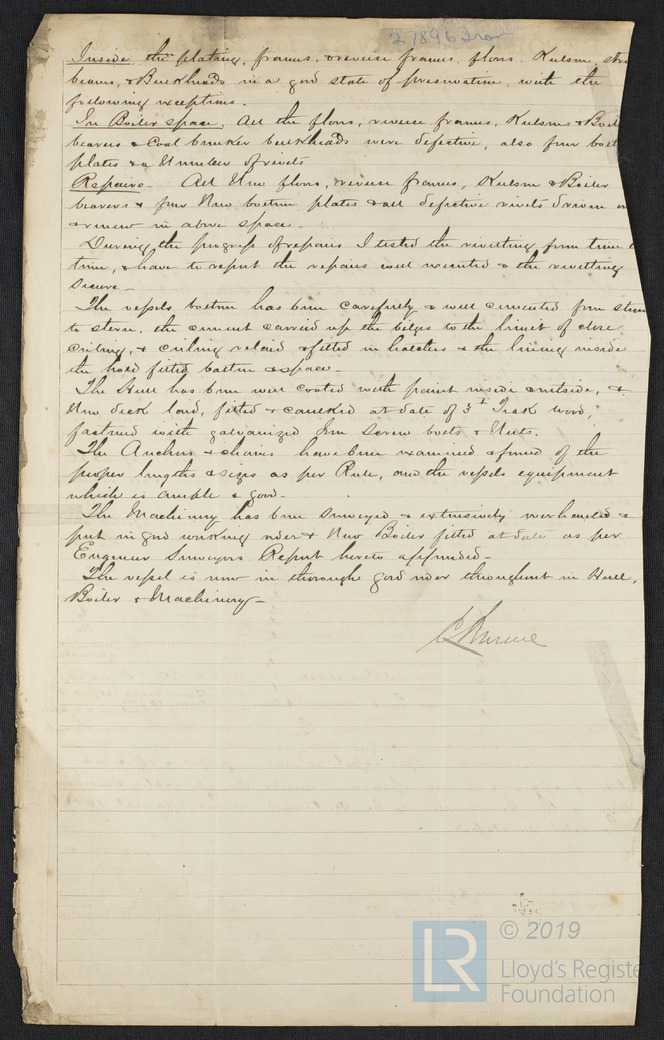 27896 Iron
Inside the plating, frames, & reverse frames, floors, Keelson,
beams, & Bulkheads in a good state of preservation, with the
following exceptions.
In Boiler space. All the floors, reverse frames, Keelsons &
bearers & Coal bunker bulkheads were defective, also four
plates & a Number of rivets
Repairs. All New floors, reverse frames, Keelson & Boiler
bearers & four New bottom plates & all defective rivets driven
& renew in above space.
During the progress of repairs I tested the rivetting from time
time, & have to report the repairs well executed & the rivetting
secure.
The vessels bottom has been carefully & well cemented from stem
to stern, the cement carried up the bilges to the limit of close
ceiling, & ceiling relaid & fitted in hatches & the lining inside
the hold fitted batten & space.
The Hull has been well coated with paint inside & outside, &
New deck laid, fitted & caulked at date of 3" Teak wood,
fastened with galvanized Iron screw bolts & Nuts.
The Anchors & chains have been examined & found of the
proper lengths & sizes as per Rule, and the vessels equipment
which is amble & good.
The Machinery has been surveyed & extensively overhauled &
put in good working order & New Boiler fitted at date as per
Engineer Surveyors Report hereto appended.
The vessel is now in thorough good order throughout in Hull,
Boiler & Machinery.
LR
© 2019
Lloyd's Registe
Foundation